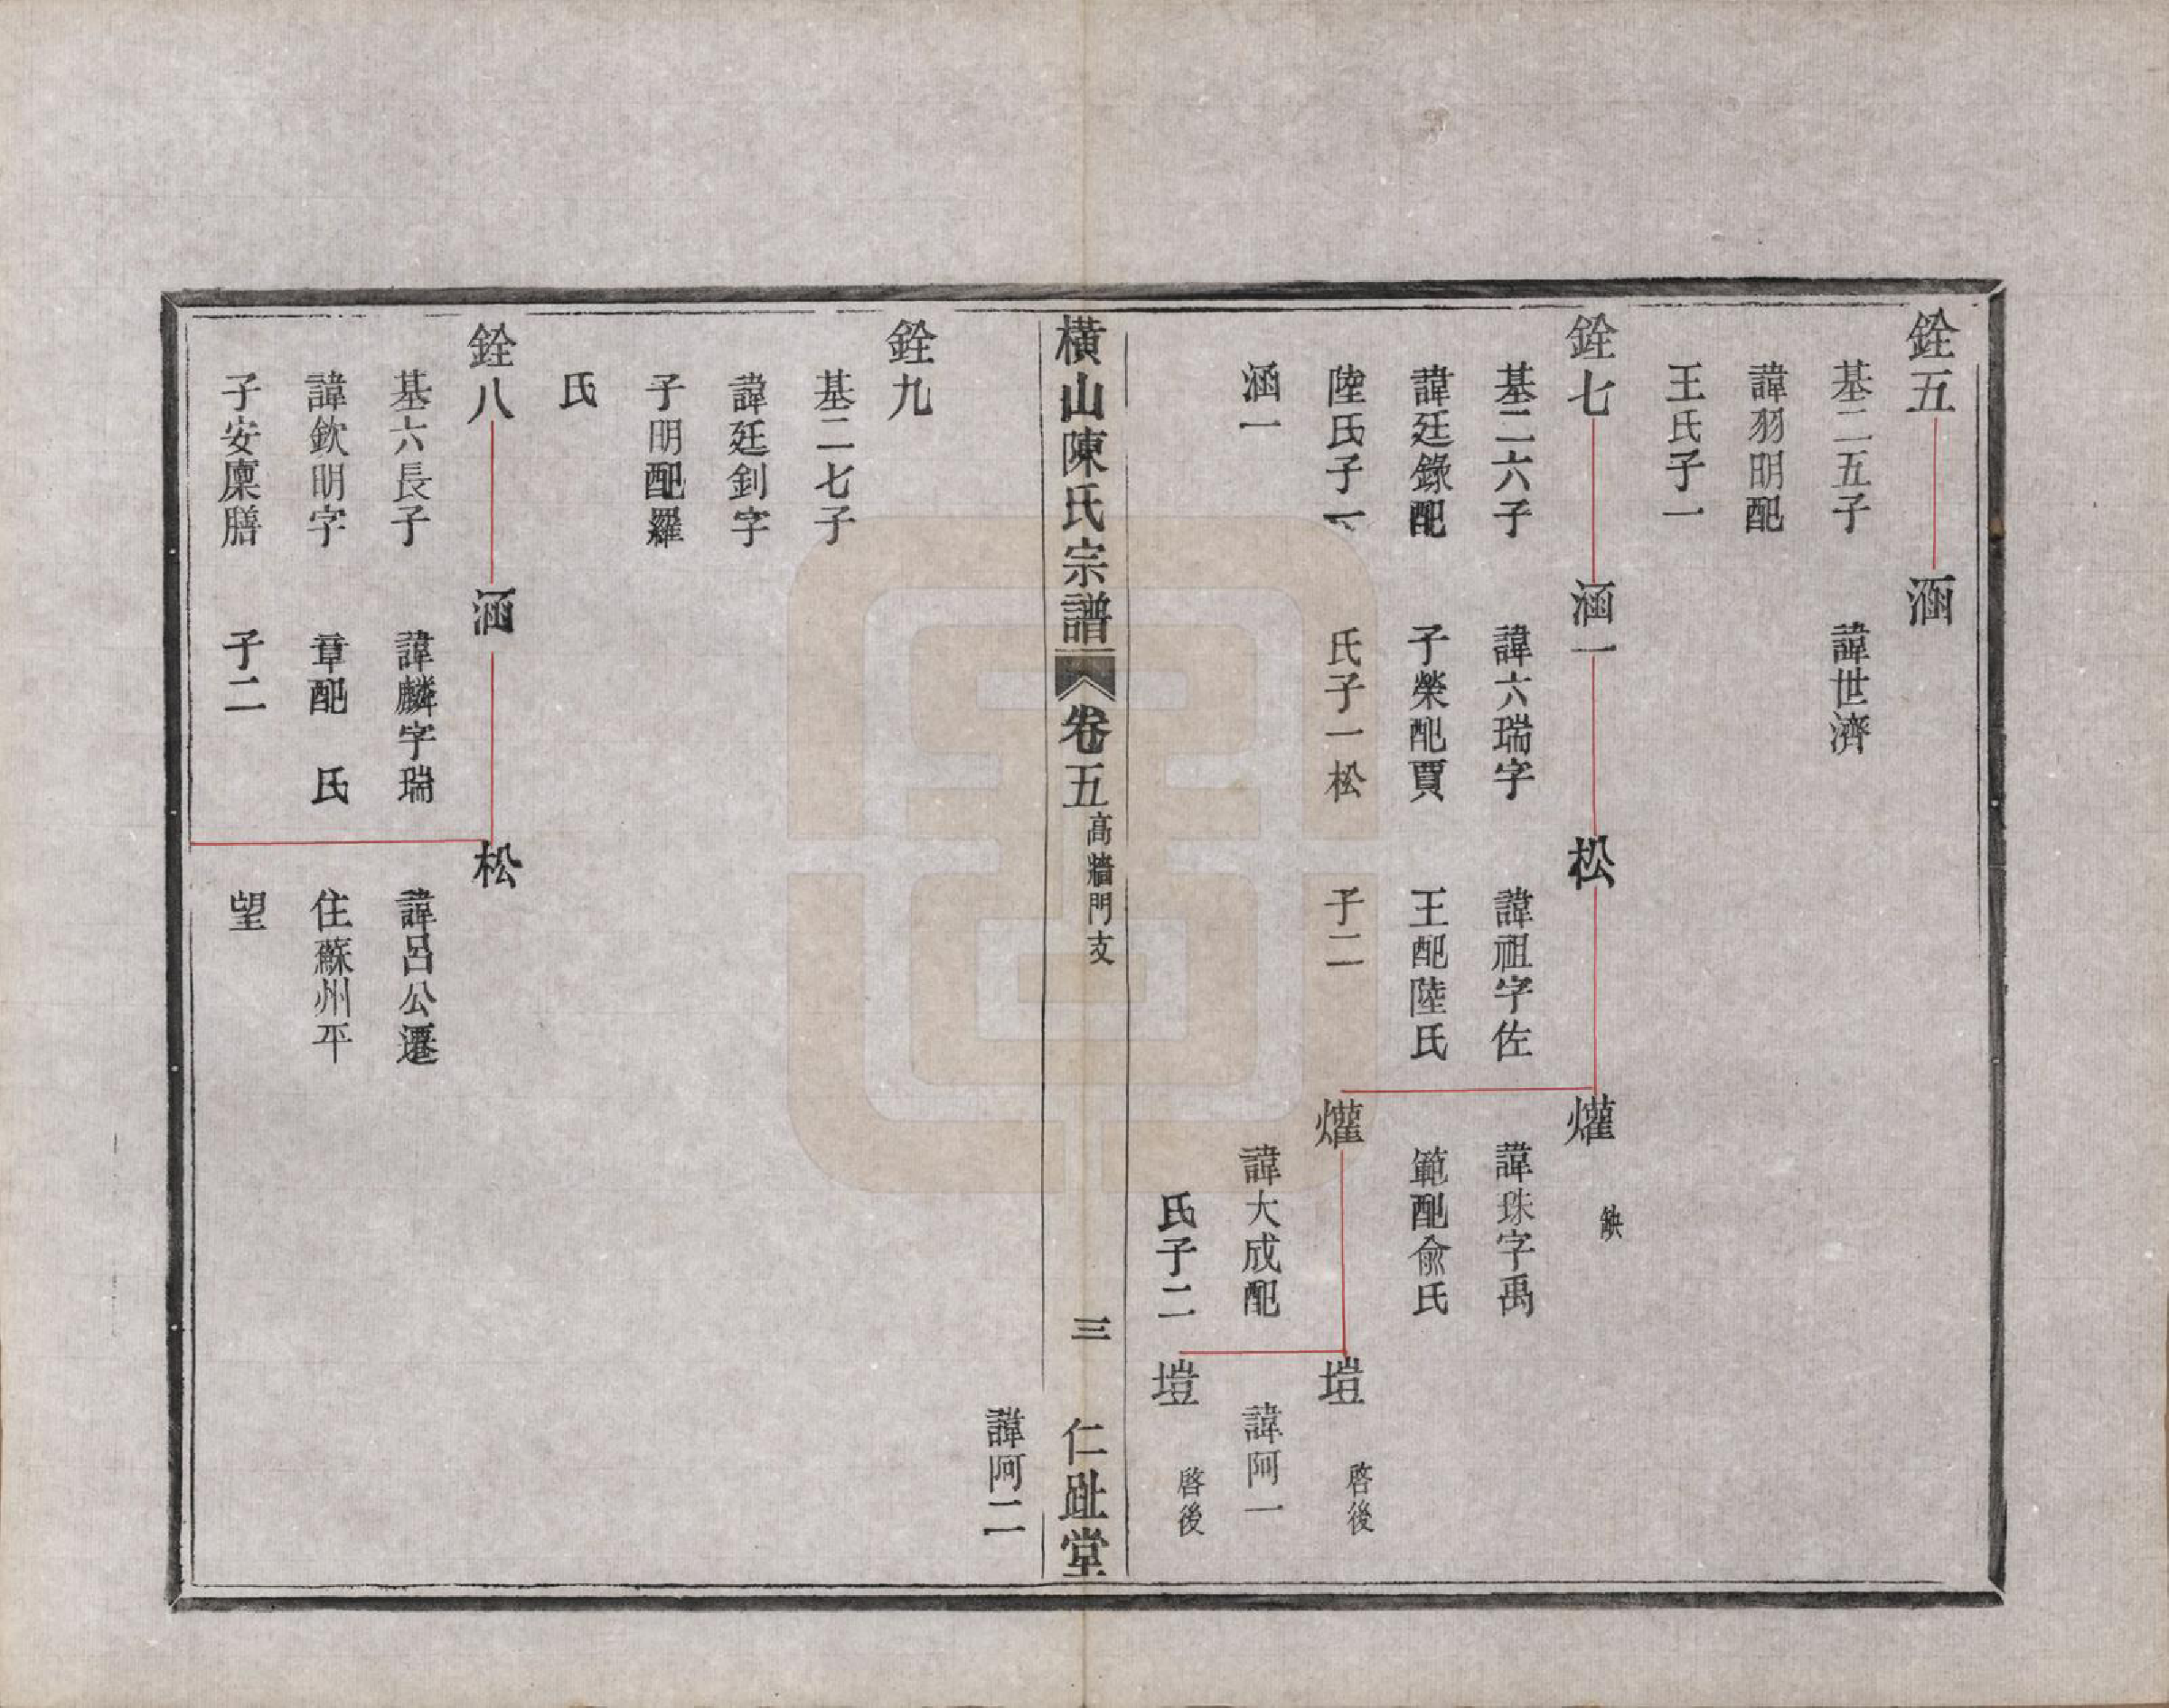 銓五
基二五子
諱羽明配
王氏子一
涵
諱世濟
銓七
基二六子
諱廷錄配
陸氏子一
涵一
涵一
諱六瑞字
子榮配賈
氏子一松
松
諱祖字佐
王配陸氏
子二
爟
缺
諱珠字禹
範配俞氏
爟
諱大成配
氏子二
塏
啓後
諱阿一
塏
啓後
橫山陳氏宗譜
卷五
高牆門支
三
仁趾堂
諱阿二
銓九
基二七子
諱廷釗字
子明配羅
氏
銓八
基六長子
諱欽明字
子安廩膳
涵
諱麟字瑞
章配 氏
子二
松
諱呂公遷
住蘇州平
望